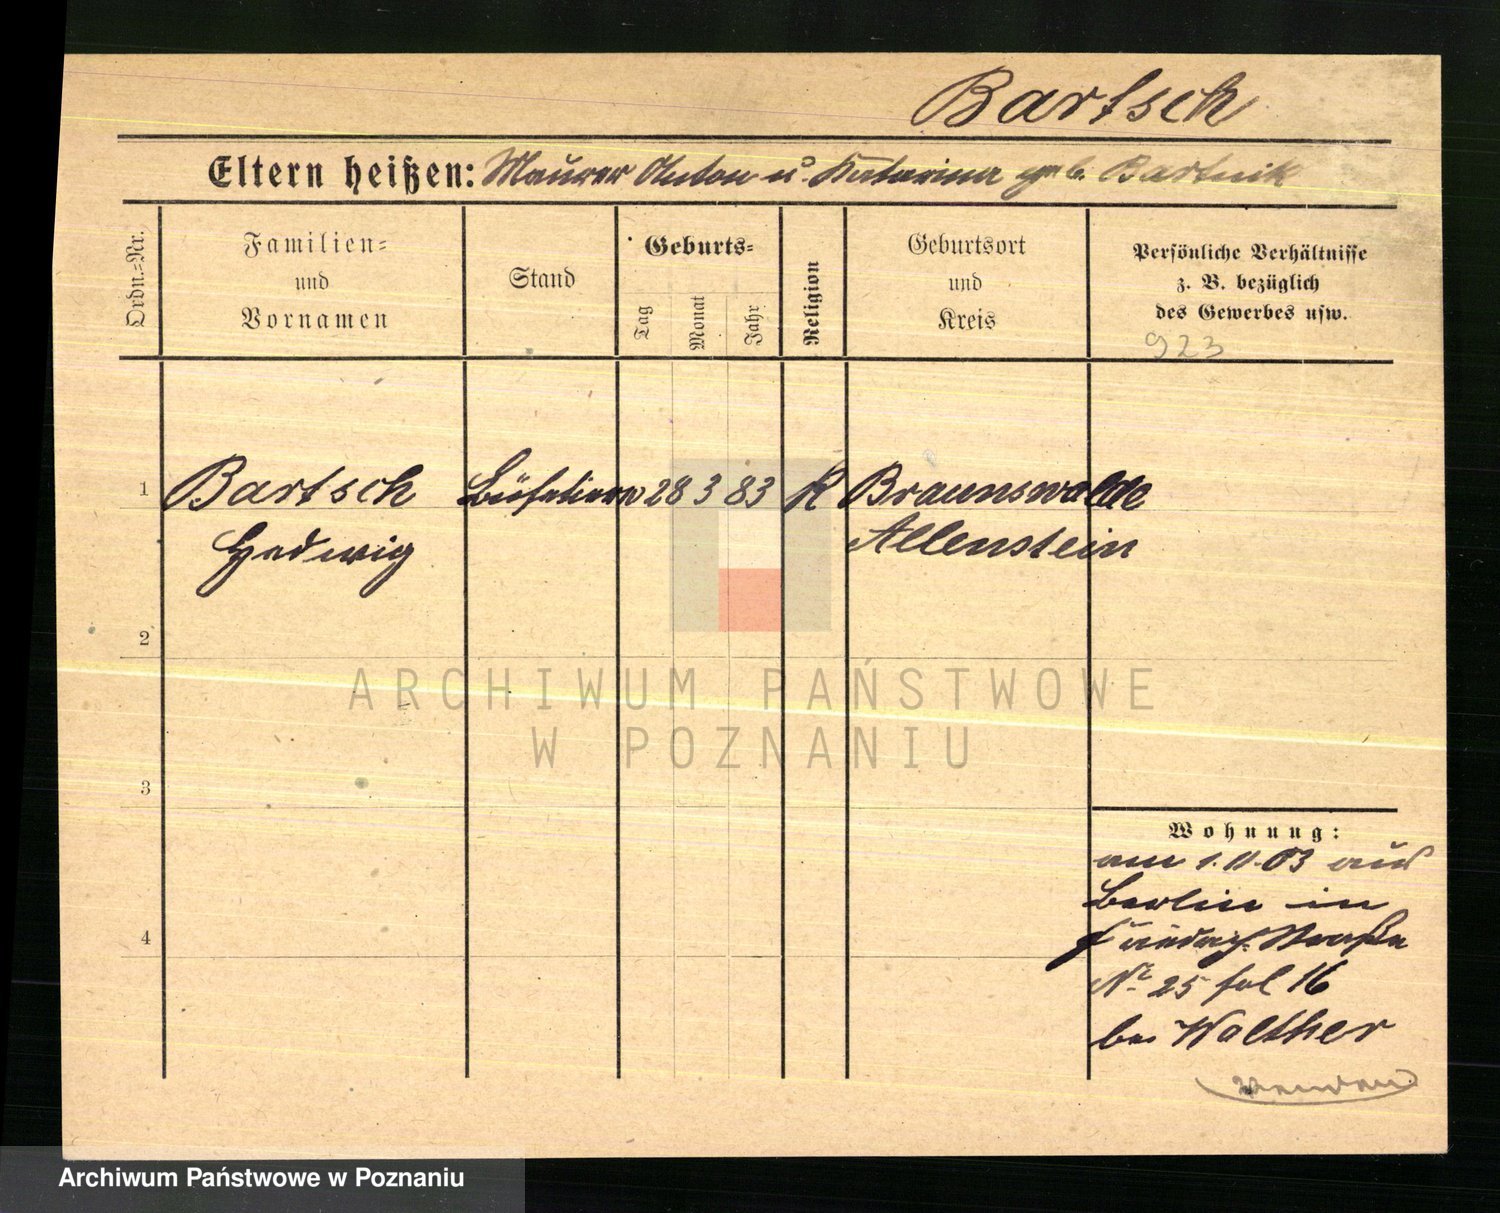 Bartsch
Eltern heißen: Maurer Anton u. Katarina geb. Bartnik
Ordn.-Nr.
Familien-
und
Vornamen
Stand
Geburts-
Tag
Monat
Jahr
Religion
Geburtsort
und
Kreis
Persönliche Verhältnisse
z. B. bezüglich
des Gewerbes usw.
923
1 Bartsch 28 3 83 K Braunswalde
Hedwig Allenstein
2
ARCHIWUM PAŃSTWOWE
W POZNANIU
3
Wohnung:
am 1.11.03 aus
Berlin in
4
Straße
No 25 16
bei Walther
Archiwum Państwowe w Poznaniu